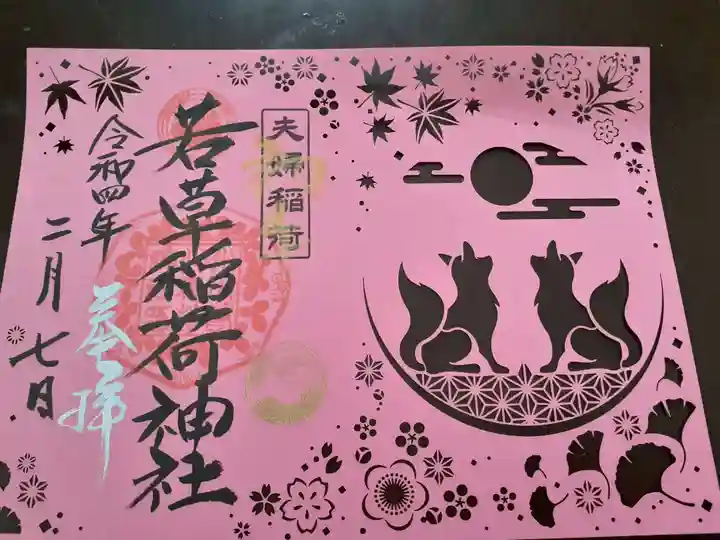 夫婦稲荷
若草稲荷神社
奉拝
令和四年
二月七日